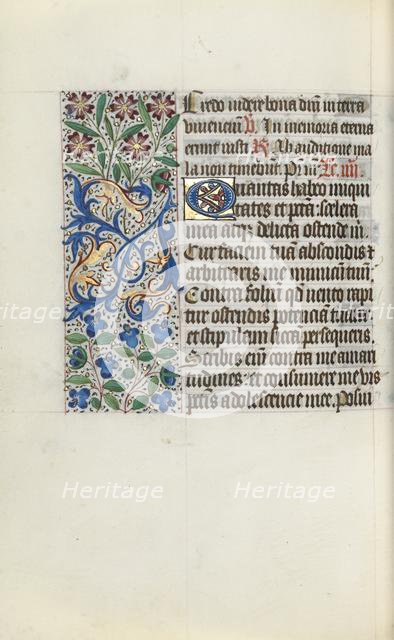 Credo videre bona dm̄ in terra
viventiū V̄. In memoria eterna
erunt iusti R̄. Ab auditione ma
la non timebūt. Lc. iiii.
Quantas habeo iniqui
tates et pctā: scelera
mea atq; delicta ostende m̄.
Cur faciem tuā abscondis &
arbitraris me inimicū tuū.
Contra foliū qd̄ vento rapi
tur ostendis potenciā tuā:
et stipulam siccā persequeris.
Scribis em̄ contra me amari
tudines: et consumere me vis
pctīs adolescencie mee. Posui
Heritage Heritage
Heritage Heritage